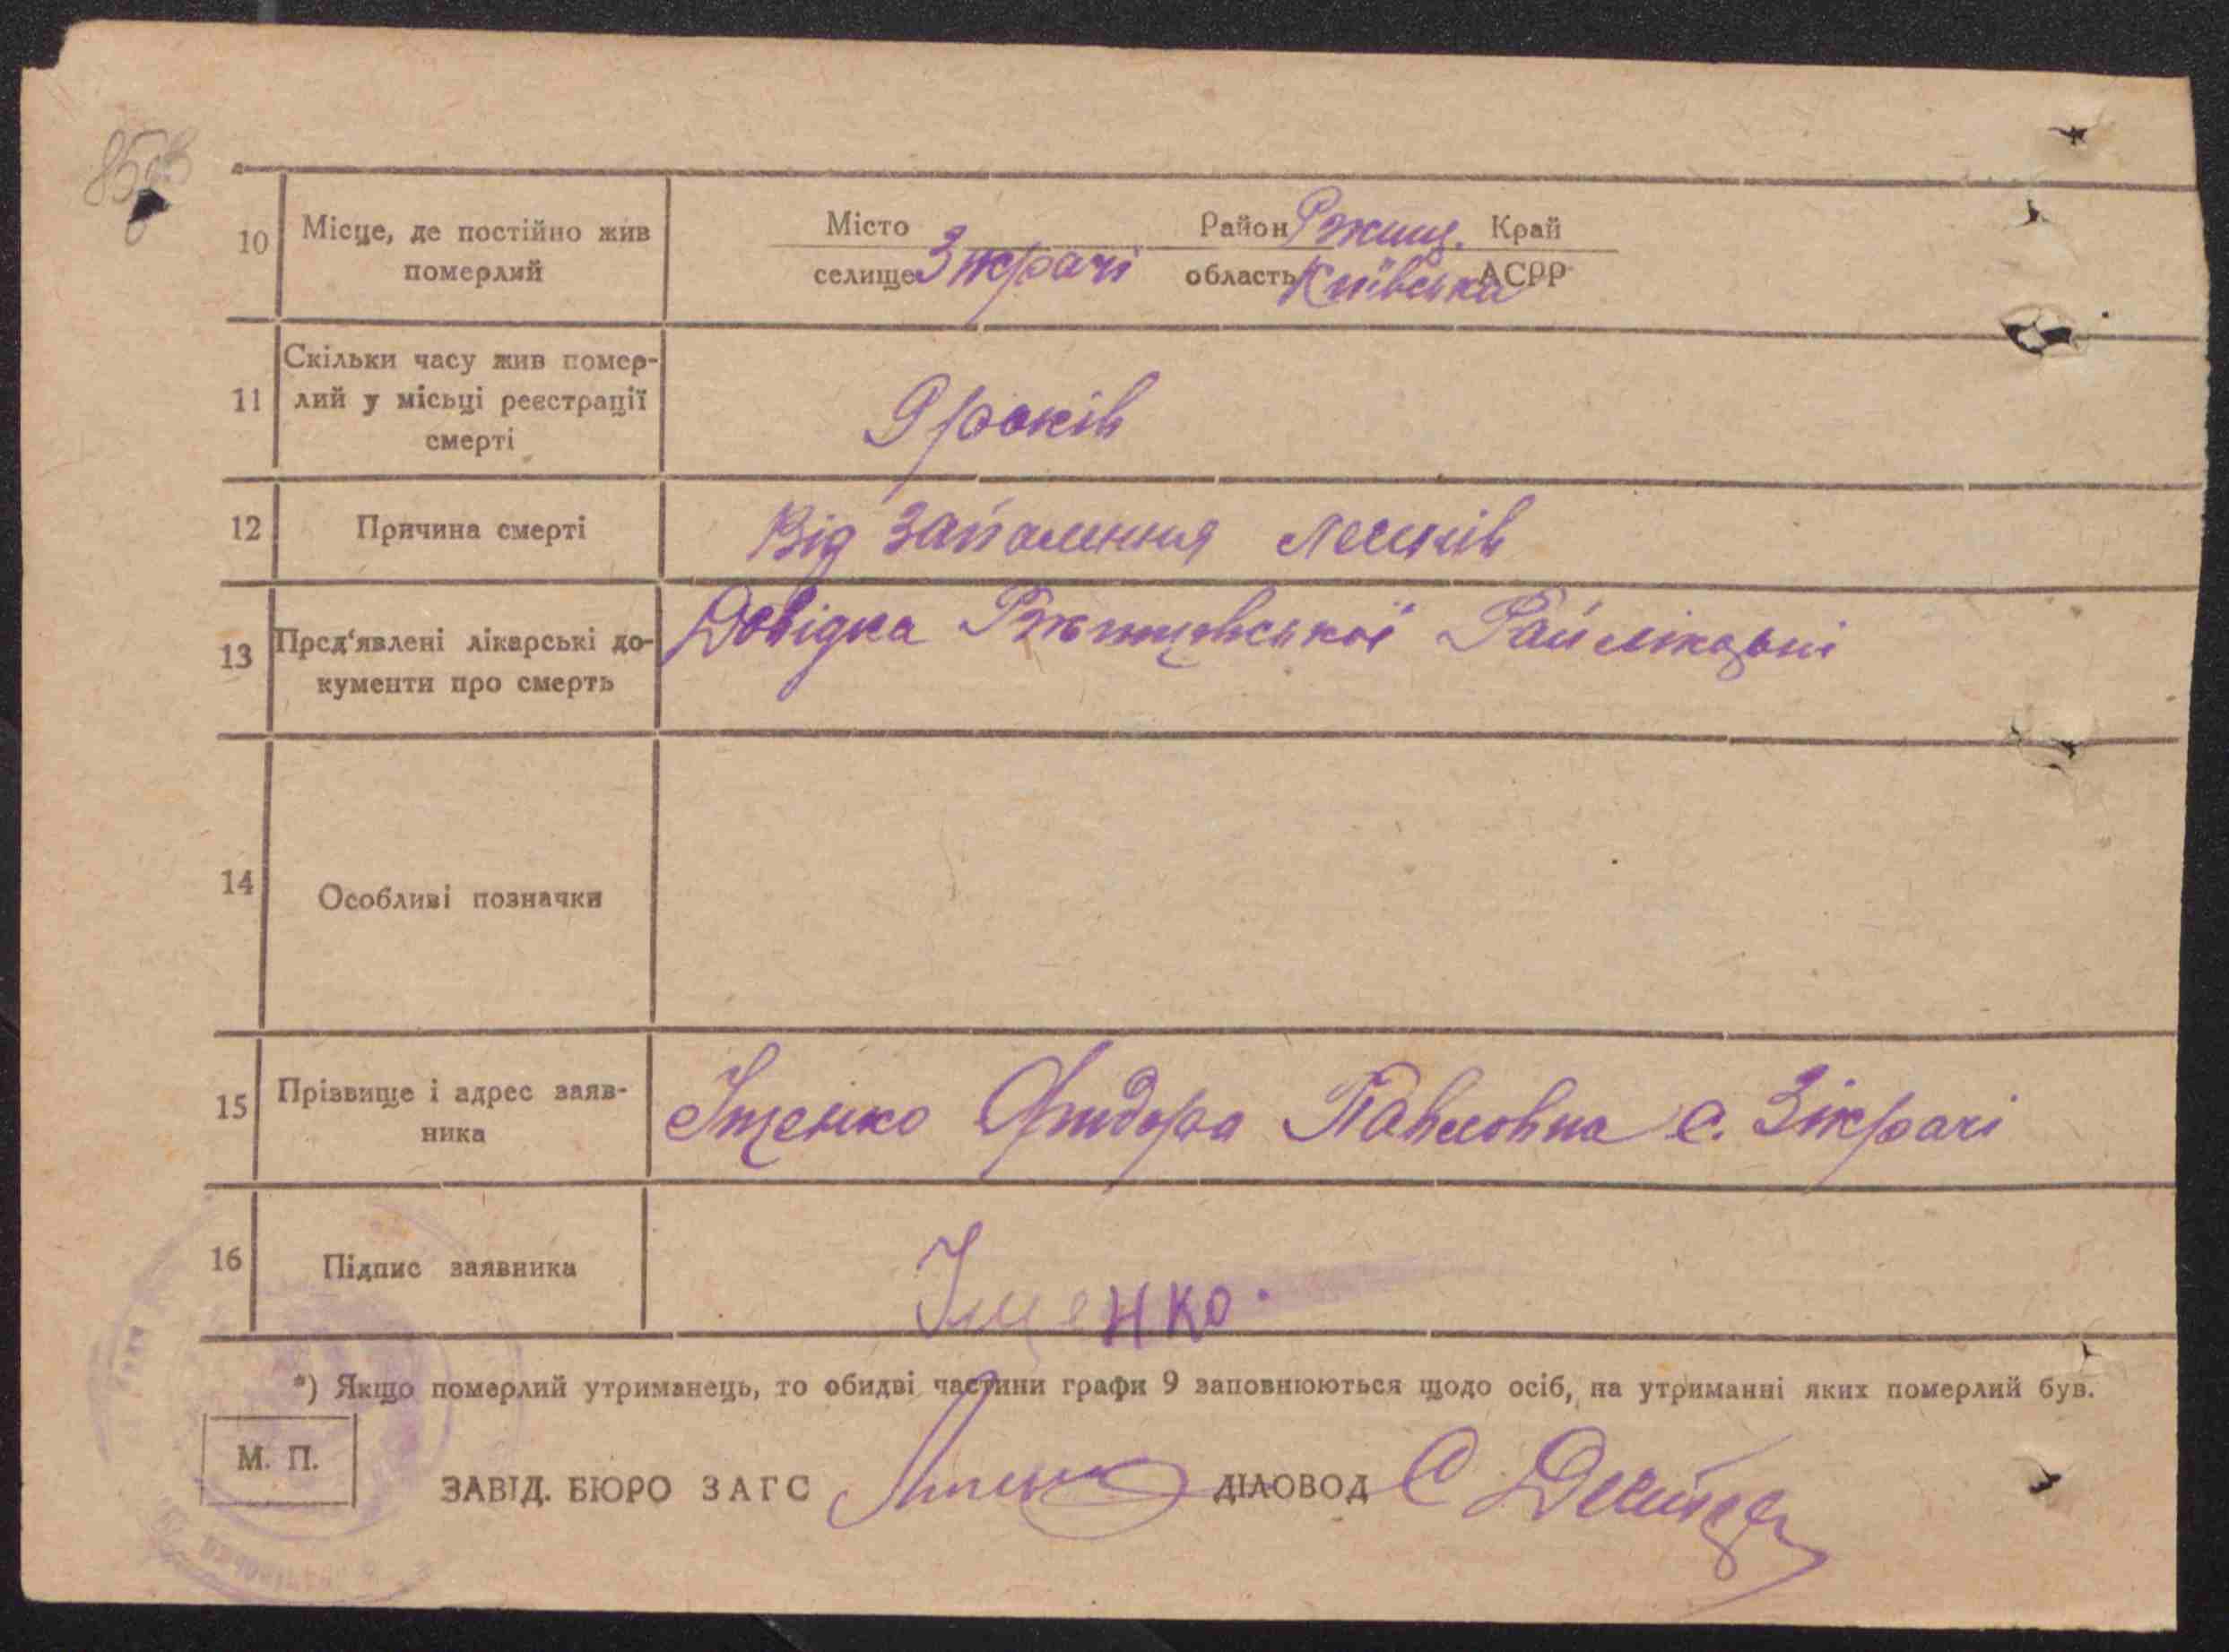 10 Місце, де постійно жив
померлий
Місто Район Ржищ. Край
селище Зікрачі область Київська АСРР
Скільки часу жив помер-
11 лий у місьці реєстрації
смерті
9 років
12 Причина смерті Від запалення легенів
13 Пред'явлені лікарські до-
кументи про смерть
Довідка Ржищевської Райлікарні
14 Особливі позначки
15 Прізвище і адрес заяв-
ника
Іщенко Павловна с. Зікрачі
16 Підпис заявника Іщенко.
*) Якщо померлий утриманець, то обидві частини графи 9 заповнюються щодо осіб, на утриманні яких померлий був.
М. П.
ЗАВІД. БЮРО ЗАГС ДІЛОВОД С